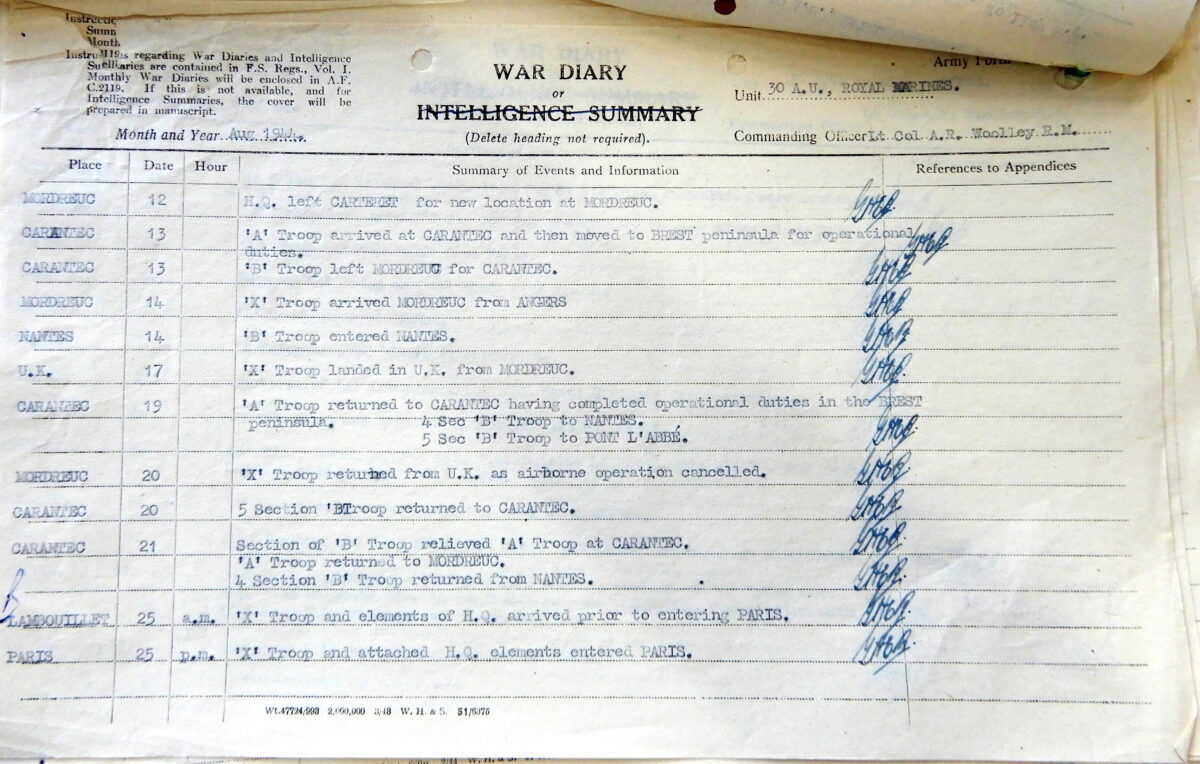 Instruc
Summ
Month
Instru 119. s regarding War Diaries and Intelligence
Su elli aries are contained in F.S. Regs., Vol. I.
Monthly War Diaries will be enclosed in A.F.
C.2119. If this is not available, and for
Intelligence Summaries, the cover will be
prepared in manuscript.
Month and Year Aug 1944.
WAR DIARY
or
INTELLIGENCE SUMMARY
(Delete heading not required).
Army Form
Unit 30 A.U., ROYAL MARINES.
Commanding Officer Lt Col A.R. Woolley R.M.
Place Date Hour Summary of Events and Information References to Appendices
MORDREUC 12 H.Q. left CARTERET for new location at MORDREUC.
CARANTEC 13 'A' Troop arrived at CARANTEC and then moved to BREST peninsula for operational
duties.
CARANTEC 13 'B' Troop left MORDREUC for CARANTEC.
MORDREUC 14 'X' Troop arrived MORDREUC from ANGERS
NANTES 14 'B' Troop entered NANTES.
U.K. 17 'X' Troop landed in U.K. from MORDREUC.
CARANTEC 19 'A' Troop returned to CARANTEC having completed operational duties in the BREST
peninsula. 4 Sec 'B' Troop to NANTES.
5 Sec 'B' Troop to PONT L'ABBÉ.
MORDREUC 20 'X' Troop returned from U.K. as airborne operation cancelled.
CARANTEC 20 5 Section 'BTroop returned to CARANTEC.
CARANTEC 21 Section of 'B' Troop relieved 'A' Troop at CARANTEC.
'A' Troop returned to MORDREUC.
4 Section 'B' Troop returned from NANTES.
R
LAMBOUILLET 25 a.m. 'X' Troop and elements of H.Q. arrived prior to entering PARIS.
PARIS 25 p.m. 'X' Troop and attached H.Q. elements entered PARIS.
Wt.47724/993 2,000,000 3/43 W. H. & S. 51/6375